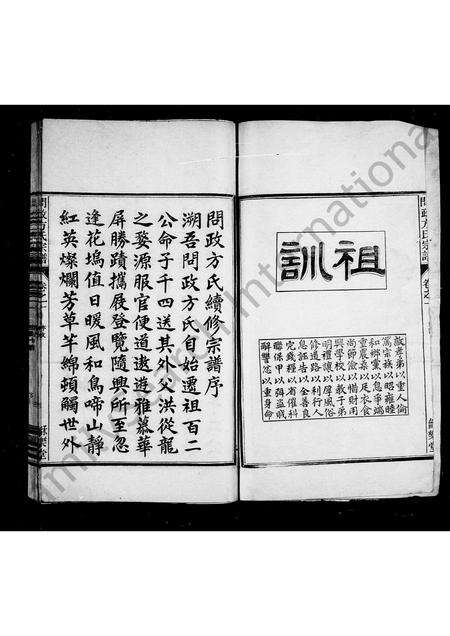 問政方氏宗譜
卷之一
訓祖
敦孝弟以重人倫
篤宗族以昭雍睦
和鄉黨以息爭端
重農桑以足衣食
尚節儉以惜財用
興學校以教子弟
明禮讓以厚風俗
修道路以利行人
息誣告以全善良
完錢糧以省催科
聯保甲以弭盜賊
解讐忿以重身命
師樂堂
問政方氏續修宗譜序
溯吾問政方氏自始遷祖百二
公命子千四送其外父洪從龍
之婺源服官便道遨遊雅慕華
屏勝蹟攜展登覽隨興所至忽
逢花塢值日暖風和鳥啼山靜
紅英燦爛芳草芊綿頓觸世外
問政方氏宗譜
卷之一
師樂堂
Family Search International